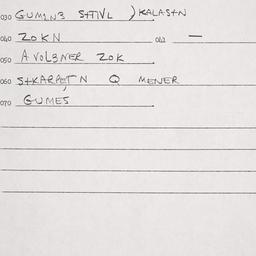 030 GUMENE STTIVL ) KALASTN
040 ZOKN 042 —
050 AVOLBNER ZOK
060 STKARPETN Q MENER
070 GUMES